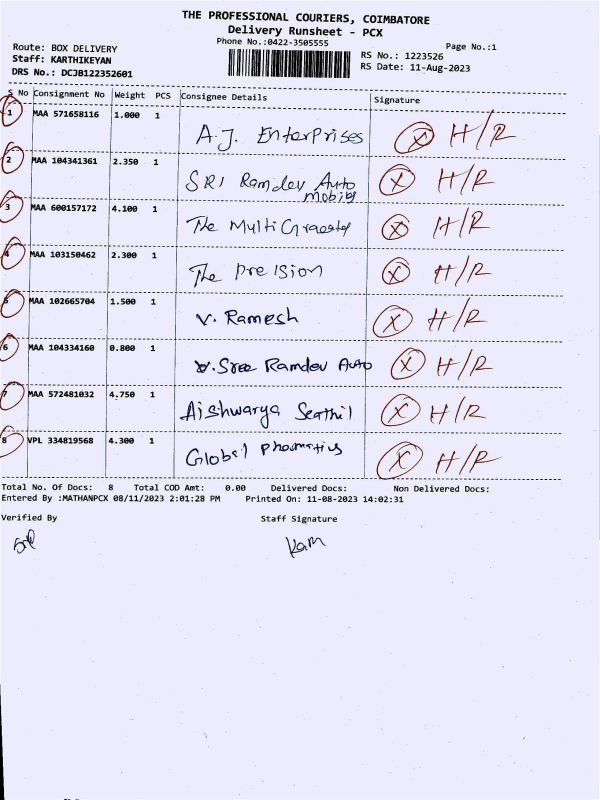 THE PROFESSIONAL COURIERS, COIMBATORE
Delivery Runsheet - PCX
Phone No.:0422-3505555
Page No.:1
Route: BOX DELIVERY
Staff: KARTHIKEYAN
DRS No.: DCJB122352601
RS No.: 1223526
RS Date: 11-Aug-2023
S No Consignment No Weight PCS Consignee Details Signature
1 MAA 571658116 1.000 1 A.J. Enterprises X H/R
2 MAA 104341361 2.350 1 SRI Ramdev Auto mobies X H/R
3 MAA 600157172 4.100 1 The Multi X H/R
4 MAA 103150462 2.300 1 The Precision X H/R
5 MAA 102665704 1.500 1 V. Ramesh X H/R
6 MAA 104334160 0.800 1 Sree Ramdev Auto X H/R
7 MAA 572481032 4.750 1 Aishwarya X H/R
8 VPL 334819568 4.300 1 Global X H/R
Total No. Of Docs: 8 Total COD Amt: 0.00 Delivered Docs: Non Delivered Docs:
Entered By :MATHANPCX 08/11/2023 2:01:28 PM Printed On: 11-08-2023 14:02:31
Verified By Staff Signature